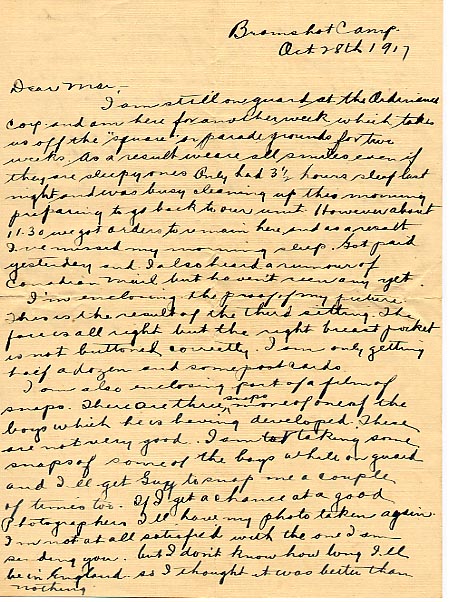 Bramshot Camp.
Oct 28th 1917
Dear Mae,
I am still on guard at the Ordinance
Coy. and am here for another week which takes
us off the "square" or parade grounds for two
weeks. As a result we are all smiles even if
they are sleepy ones Only had 3½ hours sleep last
night and was busy cleaning up this morning
preparing to go back to our unit. However about
11.30 we got orders to remain here and as a result
I've missed my morning sleep. Got paid
yesterday and I also heard a rumour of
Canadian Mail but haven't seen any yet.
I'm enclosing the proof of my picture.
This is the result of the third sitting. The
face is all right but the right breast pocket
is not buttoned correctly. I am only getting
half a dozen and some postcards
I am also enclosing part of a film of
snaps. There are three snaps more of one of the
boys which he is having developed. These
are not very good. I am taking some
snaps of some of the boys while on guard
and I'll get Guy to snap me a couple
of times too. If I get a chance at a good
photographers I'll have my photo taken again.
I'm not at all satisfied with the one I am
sending you. but I don't know how long I'll
be in England. so I thought it was better than
nothing